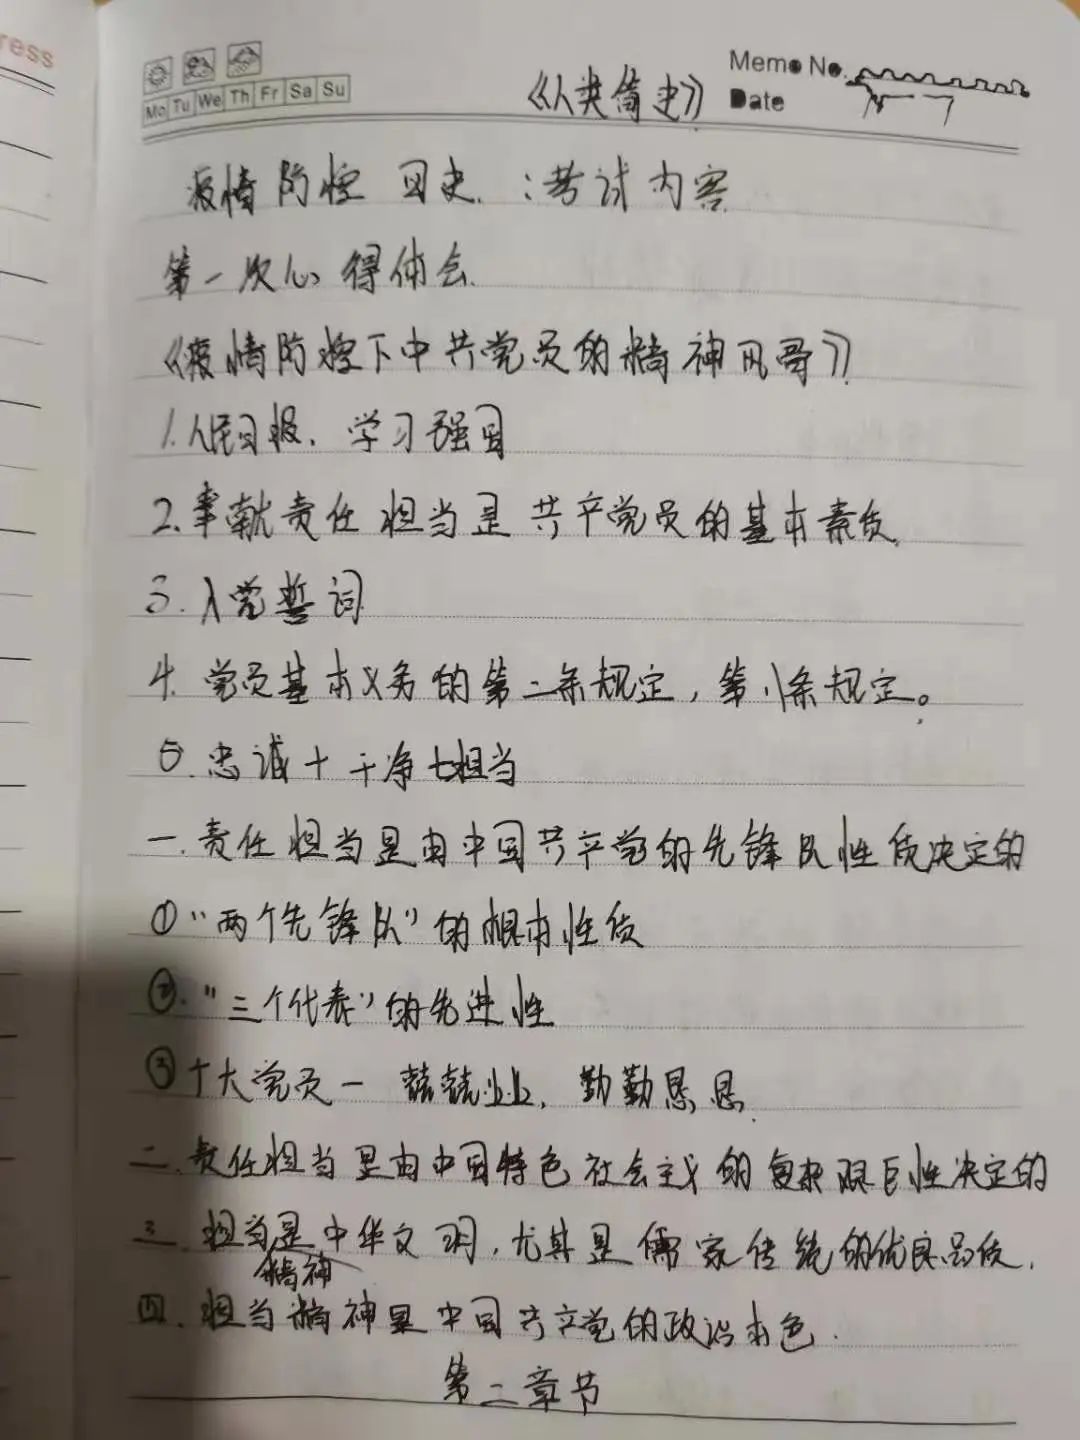 ress
Mo Tu We Th Fr Sa Su
《人类简史》
Memo No.
Date
疫情防控 四史.:考试内容
第一次心得体会.
《疫情防控下中共党员的精神风骨》
1.人民日报、学习强国
2.奉献责任担当是共产党员的基本素质.
3.入党誓词
4.党员基本义务的第二条规定,第八条规定。
5.忠诚+干净+担当
一.责任担当是由中国共产党的先锋队性质决定的
①"两个先锋队"的根本性质
②."三个代表"的先进性
③十大党员一兢兢业业,勤勤恳恳.
二.责任担当是由中国特色社会主义的复杂艰巨性决定的
三.担当精神是中华文明,尤其是儒家传统的优良品质.
四.担当精神是中国共产党的政治本色.
第二章节